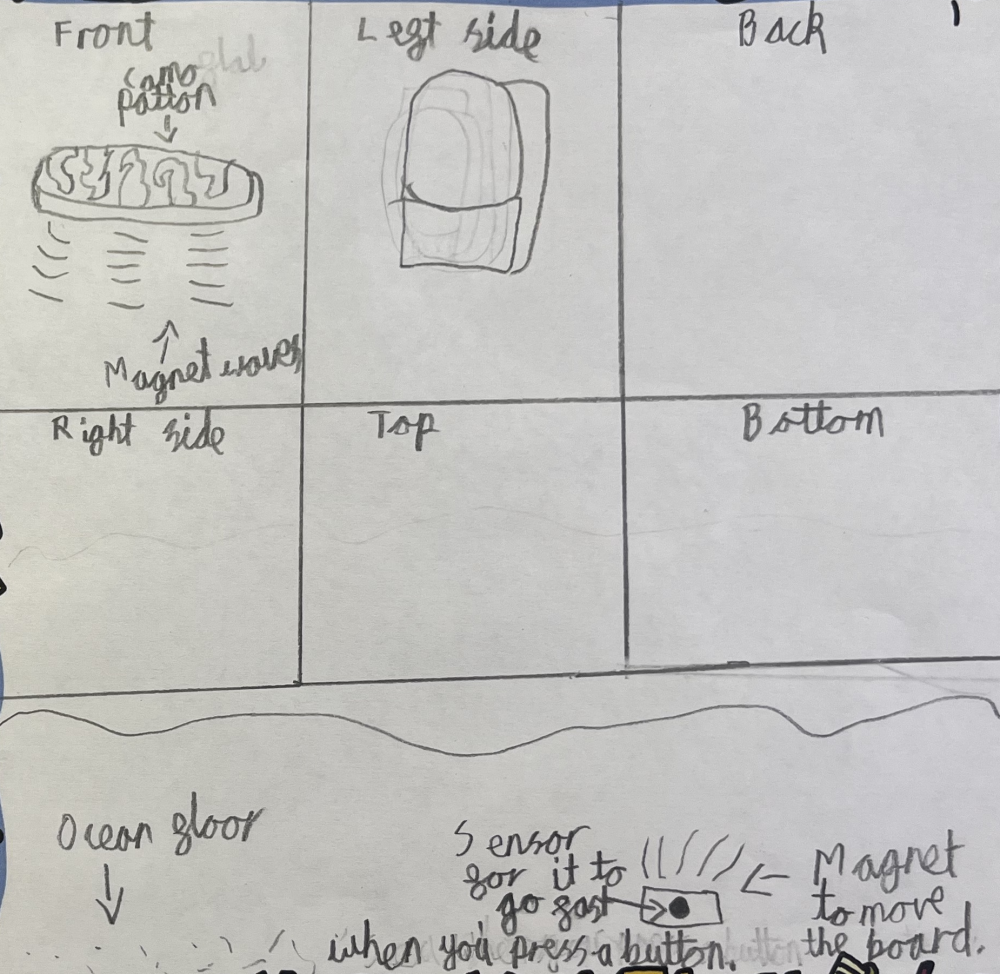 Front
Legt side
Back
camo
pattion
Magnet waves
Right side
Top
Bottom
Ocean gloor
Sensor
gor it to
go gast
when you press a button.
Magnet
to move
the board.